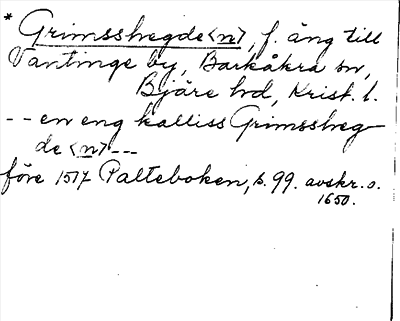 * Grimsshegde<n>, f. äng till
Vantinge by, Barkåkra sn,
Bjäre hd, Krist. l.
-- en eng kalliss Grimssheg-
de <n> ---
före 1517 Palteboken, s. 99. avskr. o.
1650.